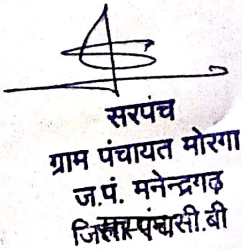 सरपंच
ग्राम पंचायत मोरगा
ज.पं. मनेन्द्रगढ़
जिला एम.सी.बी